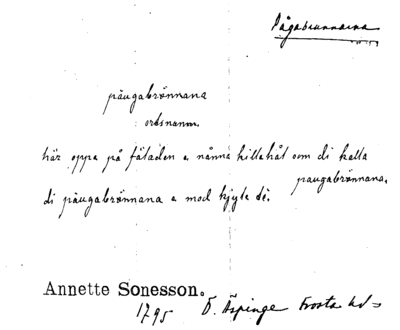 Pågabrunnarna
påugabrönnana
ortsnamn.
här oppa på fäladen e nånna killehål som di kalla
paugabrönnana.
di påugabrönnana e mod kjyle dé.
Annette Sonesson.
1795 Ö. Äspinge Frosta hd